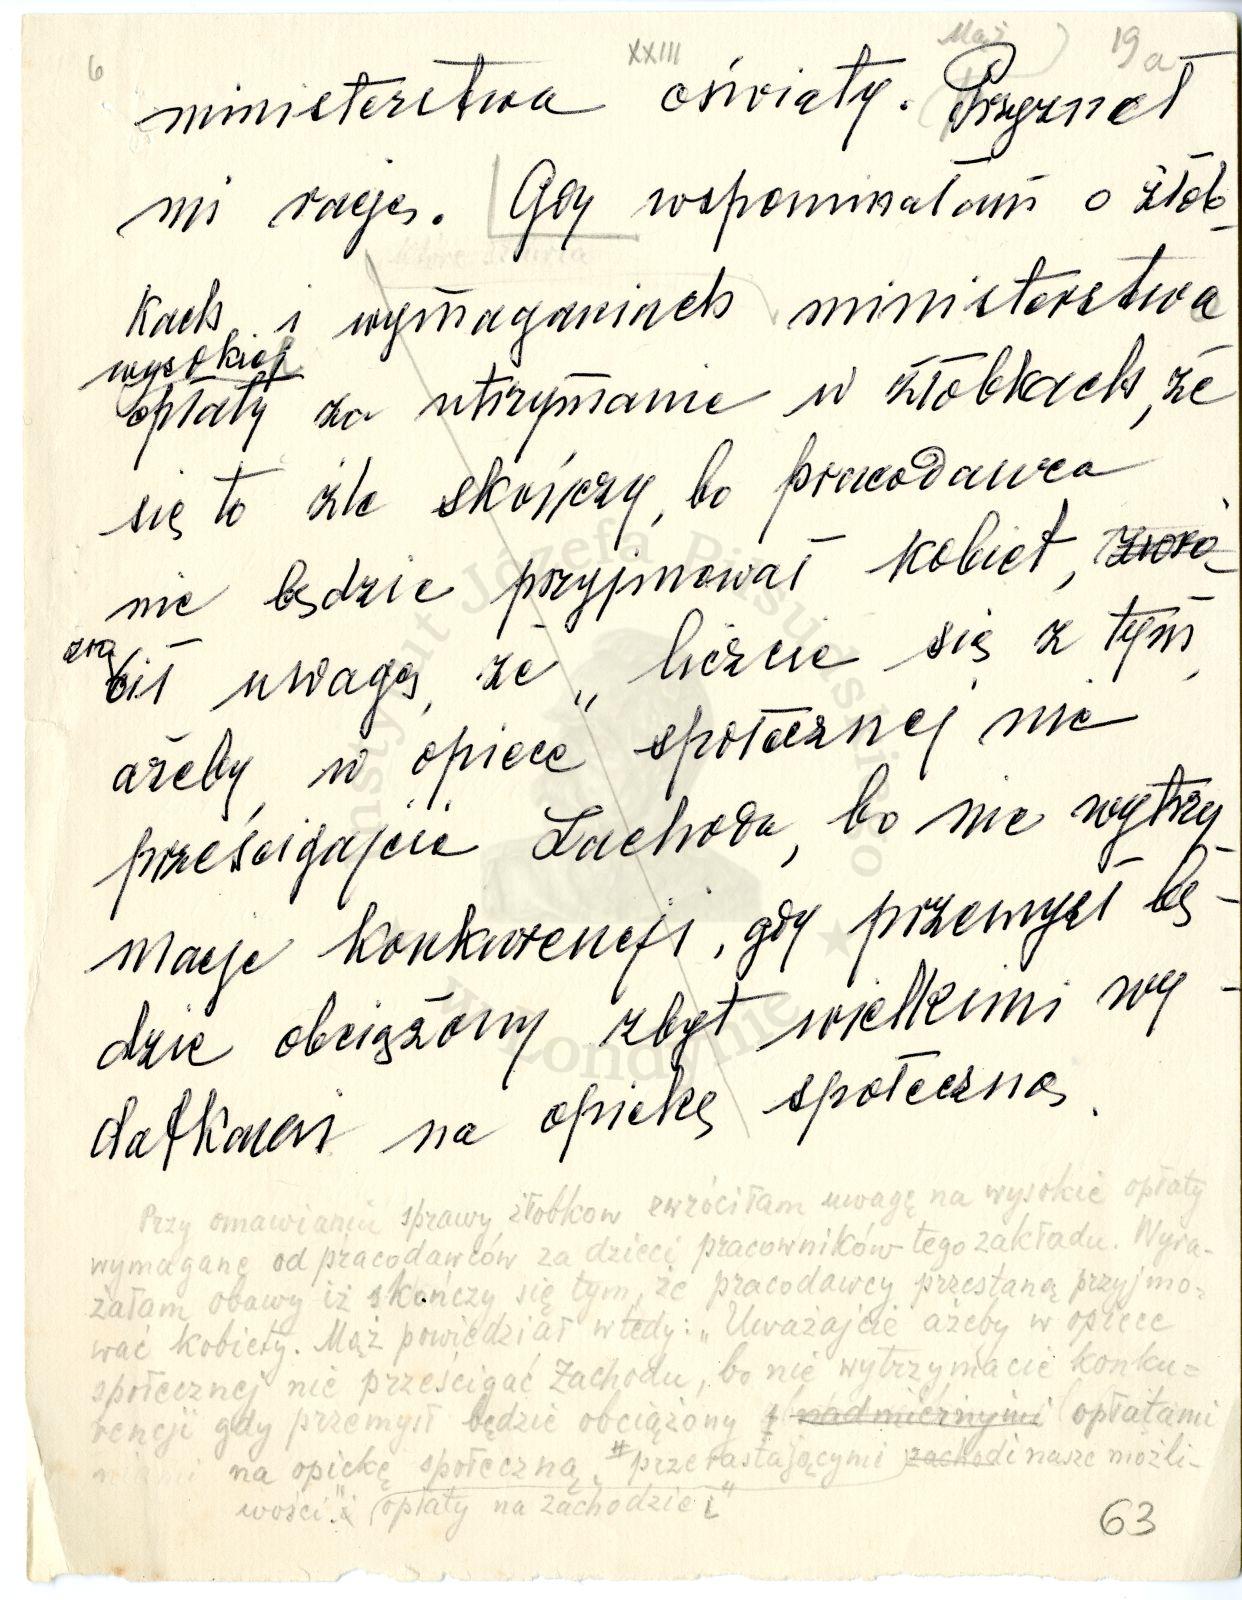 6 XXIII Mąż 19a
ministerstwa oświaty. Przyznał
mi rację. Gdy wspominałam o żłob-
które
kach i wymaganiach ministerstwa
wysokiej
opłaty za utrzymanie w żłobkach, że
się to źle skończy, bo pracodawca
nie będzie przyjmował kobiet, zwró-
zro
bił uwagę, że „liczcie się z tym,
ażeby w opiece społecznej nie
prześcigajcie Zachodu, bo nie wytrzy-
macie konkurencji, gdy przemysł bę-
dzie obciążony zbyt wielkimi wy-
datkami na opiekę społeczną.
Przy omawianiu sprawy żłobkow zwróciłam uwagę na wysokie opłaty
wymagane od pracodawców za dzieci pracowników tego zakładu. Wyra-
żałam obawy iż skończy się tym, że pracodawcy przestaną przyjmo-
wać kobiety. Mąż powiedział wtedy: „Uważajcie ażeby w opiece
społecznej nie prześcigać Zachodu, bo nie wytrzymacie konku-
rencji gdy przemysł będzie obciążony nadmiernymi opłatami
na opiekę społeczną, przerastającymi zachodi nasze możli-
wości" i opłaty na zachodzie"
63
Instytut Józefa Piłsudskiego
w Londynie